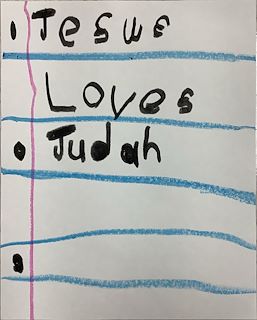 Jesus
Loves
Judah